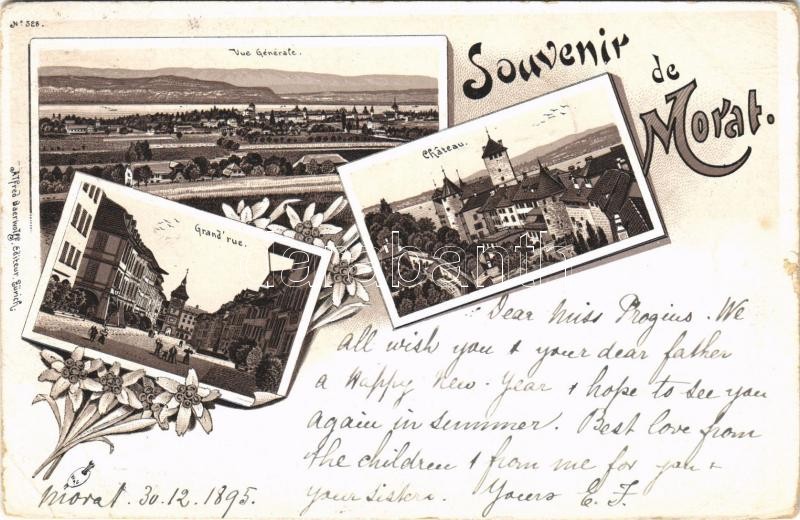 No 528.
Vue Générale.
Souvenir
de
Morat.
Château.
Grand'rue.
Alfred Baerwolff, Editeur, Zürich.
Dear Miss Progins. We
all wish you & your dear father
a Happy New-Year & hope to see you
again in summer. Best love from
the children & from me for you &
your sisters. Yours E. F.
Morat. 30.12.1895.
darabanth